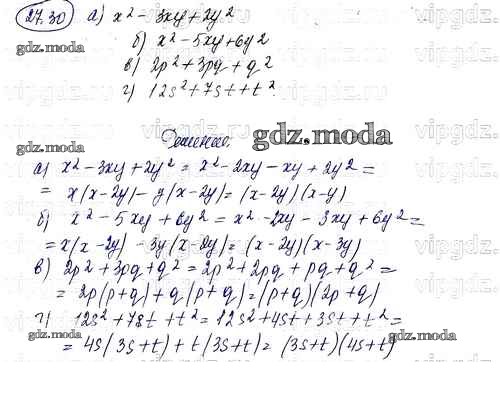 27.30 а) x² - 3xy + 2y²
б) x² - 5xy + 6y²
в) 2p² + 3pq + q²
г) 12s² + 7st + t²
gdz.moda
Решение.
gdz.moda
а) x² - 3xy + 2y² = x² - 2xy - xy + 2y² =
= x(x-2y) - y(x-2y) = (x-2y)(x-y)
б) x² - 5xy + 6y² = x² - 2xy - 3xy + 6y² =
= x(x-2y) - 3y(x-2y) = (x-2y)(x-3y)
в) 2p² + 3pq + q² = 2p² + 2pq + pq + q² =
= 2p(p+q) + q(p+q) = (p+q)(2p+q)
г) 12s² + 7st + t² = 12s² + 4st + 3st + t² =
= 4s(3s+t) + t(3s+t) = (3s+t)(4s+t)
gdz.moda
gdz.moda
gdz.moda
gdz.moda
vipgdz
vipgdz
vipgdz